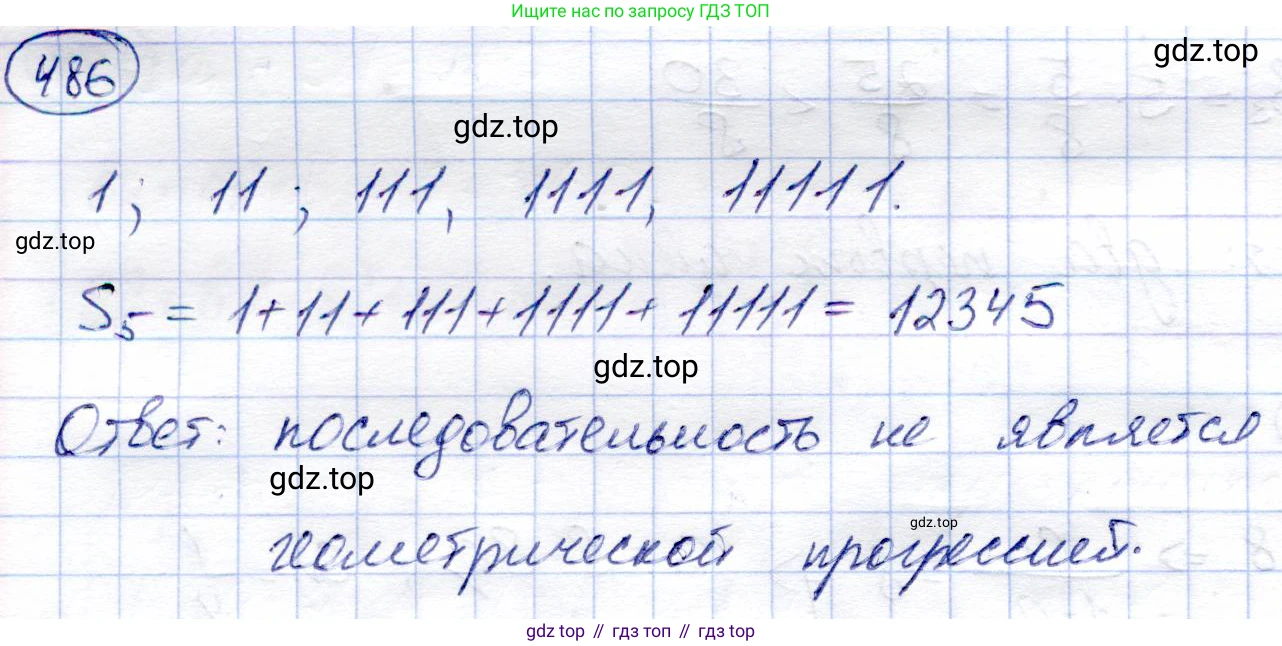 Ищите нас по запросу ГДЗ ТОП
486
gdz.top
gdz.top
1; 11; 111, 1111, 11111.
gdz.top
S5 = 1+11+111+1111+11111= 12345
gdz.top
Ответ: последовательность не является
gdz.top
gdz.top
геометрической прогрессией.
gdz top // гдз топ // гдз top